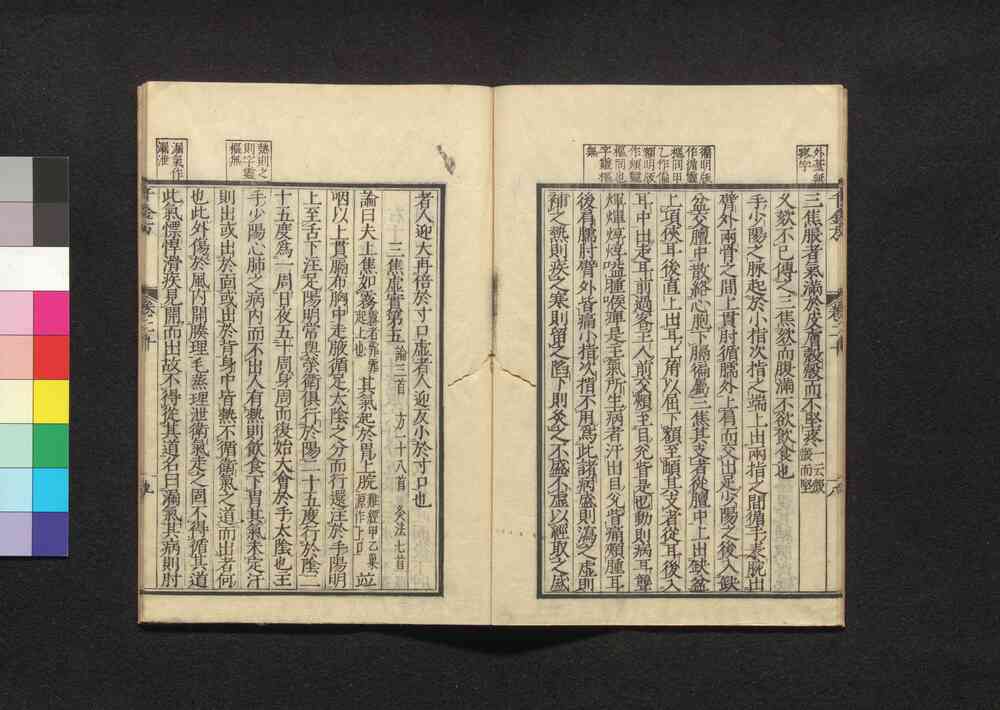 外臺無
寒字
三焦脹者氣滿於皮膚殼殼而不堅疼一云殼殼而堅
久欬不已傳之三焦欬而腹滿不欲飲食也
手少陽之脉起於小指次指之端上出兩指之間循手表腕出
臂外兩骨之間上貫肘循臑外上肩而交出足少陽之後入缺
盆交膻中散絡心胞下膈徧屬三焦其支者從膻中上出缺盆
上項俠耳後直上出耳上角以屈下額至䪼其支者從耳後入
耳中出走耳前過客主人前交頰至目兌眥是也動則病耳聾
煇煇焞焞嗌腫喉痺是主氣所生病者汗出目兌眥痛頰腫耳
後肩臑肘臂外皆痛小指次指不用爲此諸病盛則瀉之虛則
補之熱則疾之寒則留之陷下則灸之不盛不虛以經取之盛
者人迎大再倍於寸口虛者人迎反小於寸口也
三焦虛實第五論三首 方一十八首 灸法七首
論曰夫上焦如霧霧者霏霏起上也其氣起於胃上脘難經甲乙巢源作上口並
咽以上貫膈布胸中走腋循足太陰之分而行還注於手陽明
上至舌下注足陽明常與榮衛俱行於陽二十五度行於陰二
十五度爲一周日夜五十周身周而復始大會於手太陰也主
手少陽心肺之病內而不出人有熱則飲食下胃其氣未定汗
則出或出於面或出於背身中皆熱不循衛氣之道而出者何
也此外傷於風內開腠理毛蒸理泄衛氣走之固不得循其道
此氣慓悍滑疾見開而出故不得從其道名曰漏氣其病則肘
熱則之
則字靈
樞無
漏氣作
漏泄